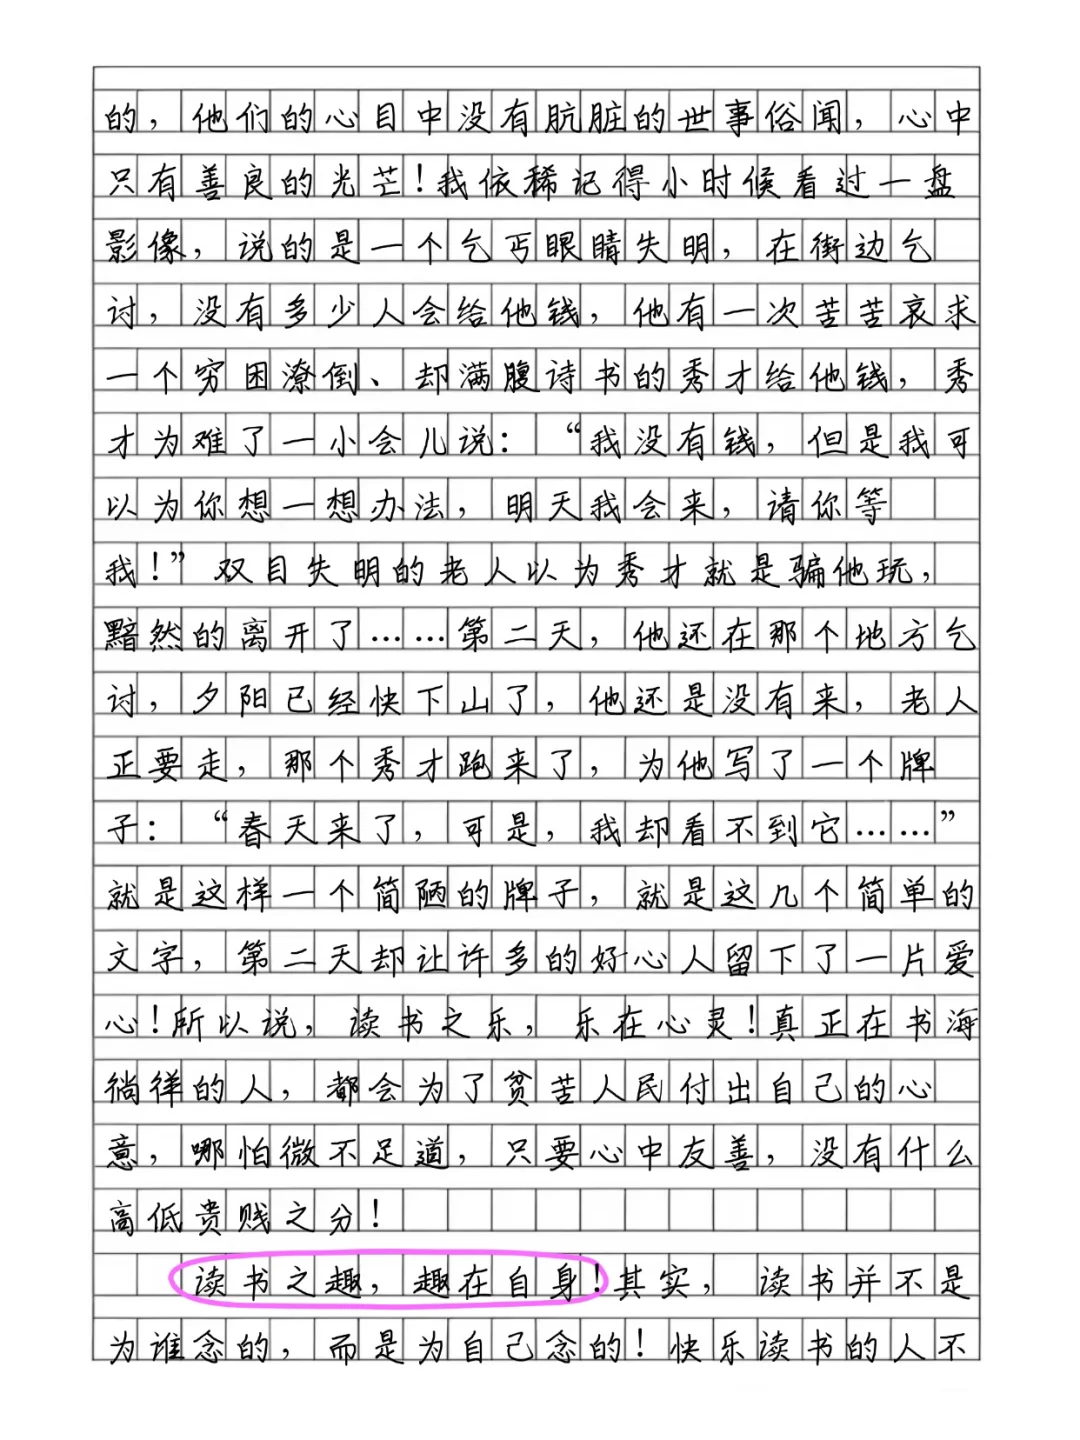 的，他们的心目中没有肮脏的世事俗闻，心中
只有善良的光芒！我依稀记得小时候看过一盘
影像，说的是一个乞丐眼睛失明，在街边乞
讨，没有多少人会给他钱，他有一次苦苦哀求
一个穷困潦倒、却满腹诗书的秀才给他钱，秀
才为难了一小会儿说：“我没有钱，但是我可
以为你想一想办法，明天我会来，请你等
我！”双目失明的老人以为秀才就是骗他玩，
黯然的离开了……第二天，他还在那个地方乞
讨，夕阳已经快下山了，他还是没有来，老人
正要走，那个秀才跑来了，为他写了一个牌
子：“春天来了，可是，我却看不到它……”
就是这样一个简陋的牌子，就是这几个简单的
文字，第二天却让许多的好心人留下了一片爱
心！所以说，读书之乐，乐在心灵！真正在书海
徜徉的人，都会为了贫苦人民付出自己的心
意，哪怕微不足道，只要心中友善，没有什么
高低贵贱之分！
读书之趣，趣在自身！其实，读书并不是
为谁念的，而是为自己念的！快乐读书的人不